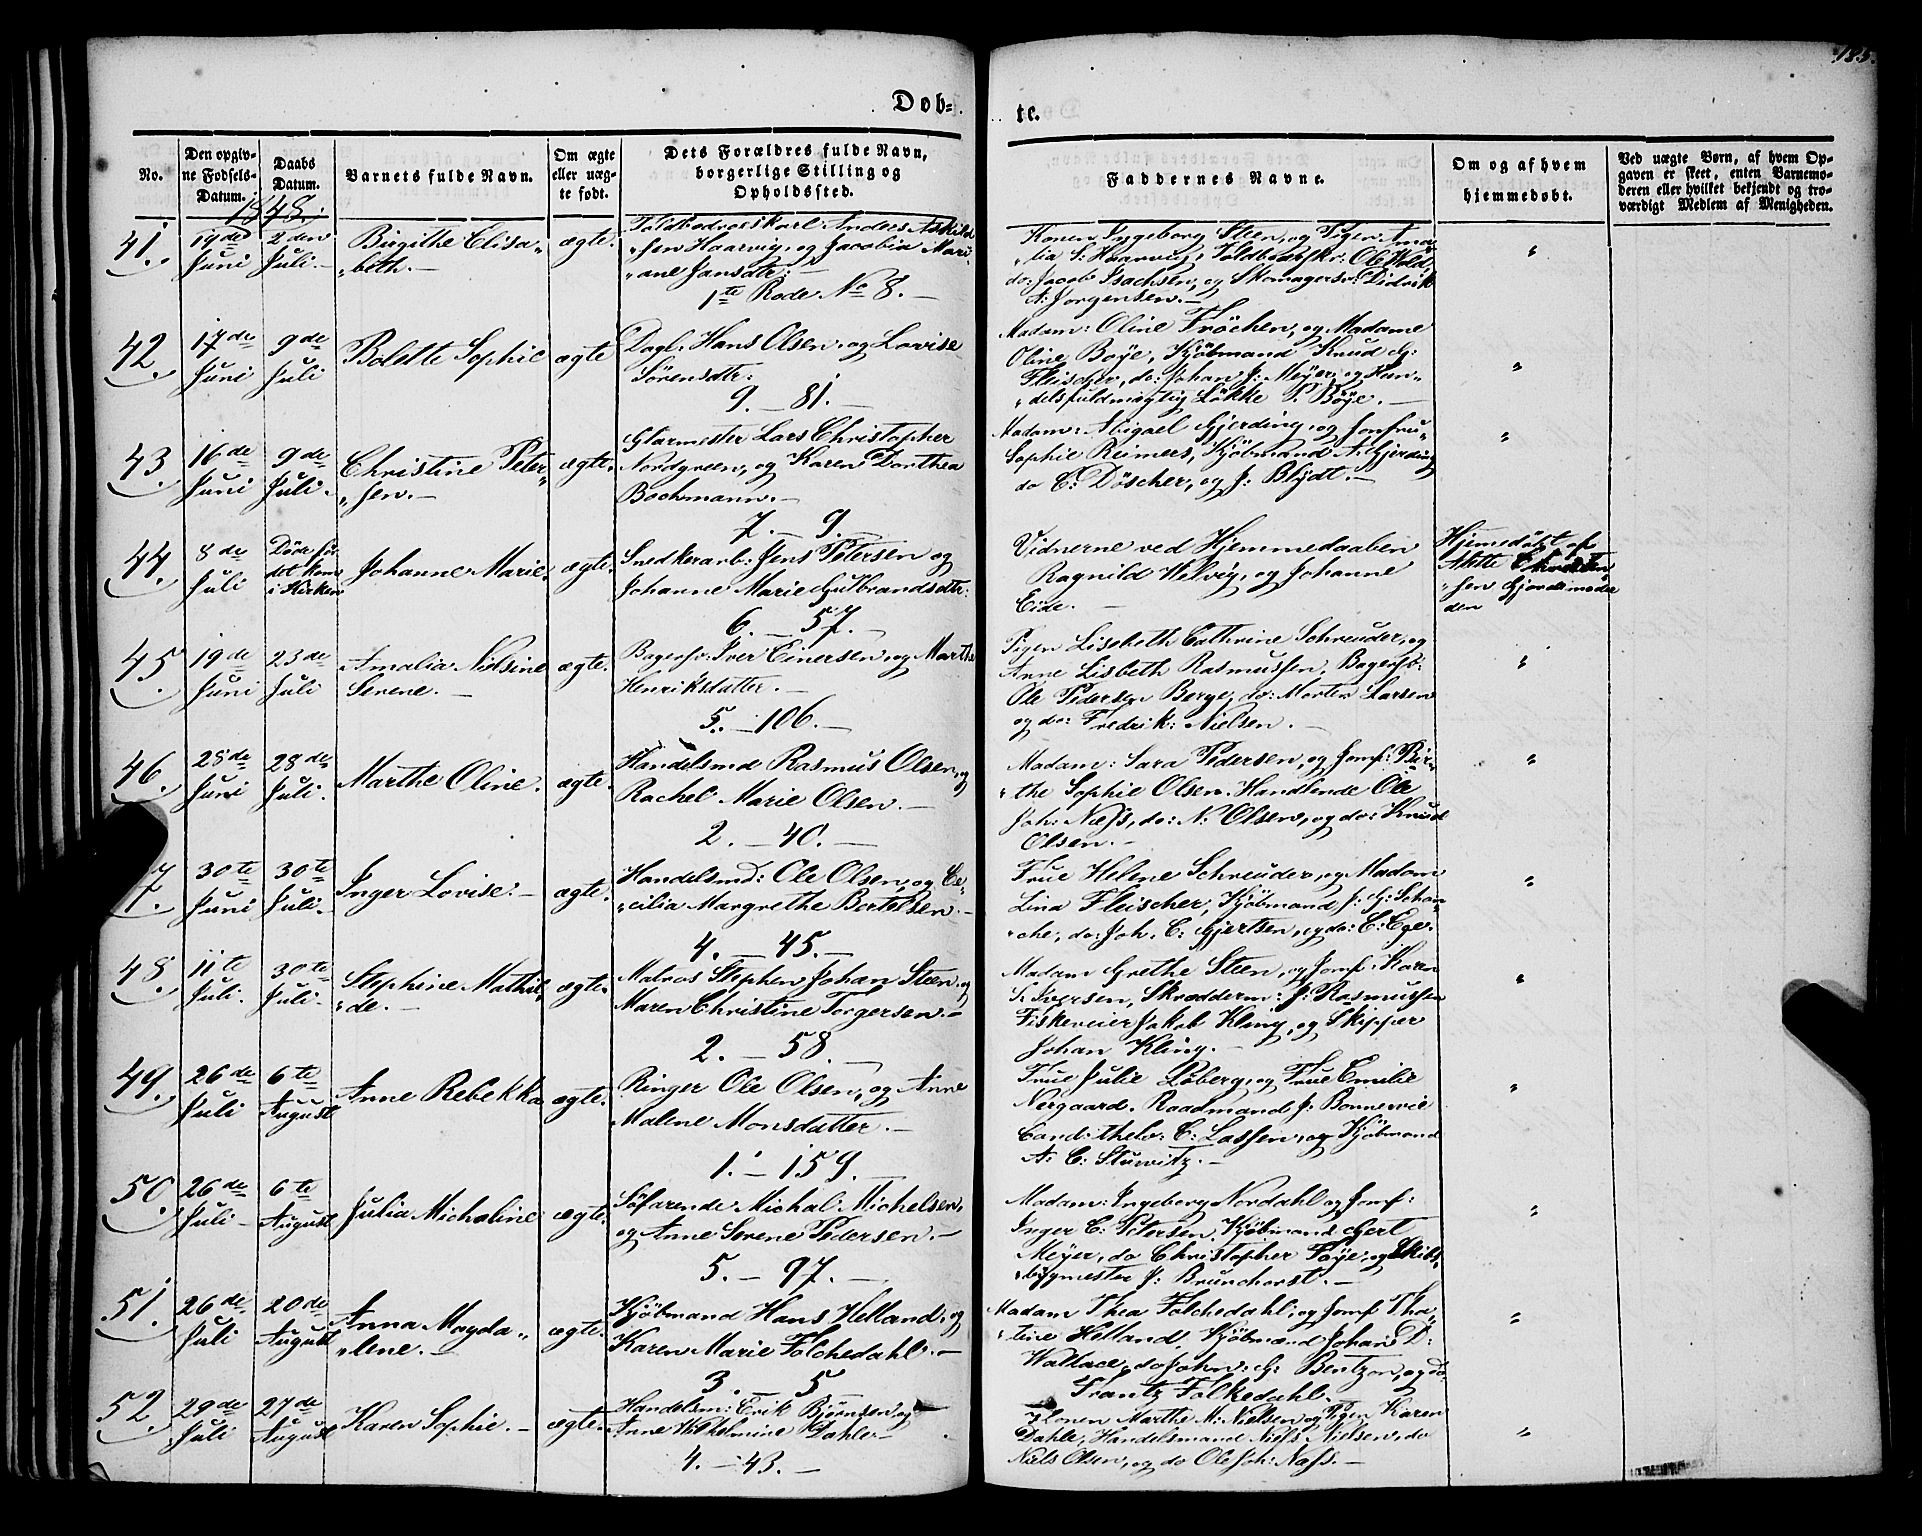 185.
Døb-
te.
No.
Den opgiv-
ne Fødsels-
Datum.
Daabs
Datum.
Barnets fulde Navn.
Om ægte
eller uæg-
te født.
Dets Forældres fulde Navn,
borgerlige Stilling og
Opholdssted.
Faddernes Navne.
Om og af hvem
hjemmedøbt.
Ved uægte Børn, af hvem Op-
gaven er skeet, enten Barnemo-
deren eller hvilket bekjendt og tro-
værdigt Medlem af Menigheden.
1848.
41.
19de
Juni
2den
Juli.
Birgithe Elisa„
„beth.
ægte.
Anders Askild
„sen Haarvig, og Jacobia Mari„
„ane Jansdtr:
1te Rode No 8.
Konen Ingeborg Steen, og Pigen Ama„
„lia S. Haarvig, Toldbetjskr: Ole Wold,
do: Jacob Isachsen, og Skomagersv: Didrik
A: Jørgensen.
„
42.
17de
Juni
9de
Juli
Bolette Sophie
ægte
Dagl: Hans Olsen, og Lovise
Sörensdtr:
9. 81.
Madam: Oline Fröchen, og Madame
Oline Boye, Kjöbmand Knud G:
Fleischer, do: Johan J: Meyer, og Han„
„delsfuldmægtig Lökke P. Böye.
„
43.
16de
Juni
9de
Juli.
Christine Peter„
„sen.
ægte.
Glarmester Lars Christopher
Nordgreen, og Karen Dorthea
Bochmann.
7. 9.
Madam: Abigael Gjerding, og Jomfru
Sophie Reimers, Kjöbmand A: Gjerding
do C: Döscher, og J: Blydt.
„
44.
8de
Juli
Döde för
det kom
i Kirken
Johanne Marie.
ægte.
Snedkerarb: Jens Petersen og
Johanne Marie Gulbrandsdtr:
6. 57.
Vidnerne ved Hjemmedaaben
Ragnild Helvig, og Johanne
Eide.
Hjemedöbt af
Mette Christen„
„sen Gjordemoder
den
45.
19de
Juni
23de
Juli
Amalia Nilsine
Serene.
ægte.
Bagersv: Iver Einersen, og Marthe
Henriksdatter.
5. 106.
Pigen Lisebeth Cathrine Schreuder, og
Anne Lisbeth Rasmussen, Bagersv:
Ole Pedersen Berge, do: Morten Larsen
og do: Fredrik: Nielsen.
„
46.
28de
Juni
28de
Juli.
Marthe Oline.
ægte.
Handelsmd Rasmus Olsen, og
Rachel Marie Olsen.
2. 40.
Madam: Sara Pedersen, og Jomf: Bir„
„the Sophie Olsen. Handlende Ole
Joh: Næss, do: N: Olsen, og do: Knud
Olsen.
„
7.
30te
Juni
30te
Juli.
Inger Lovise.
ægte.
Handelsmd: Ole Olsen, og Ce„
„cilia Margrethe Bertelsen.
4. 45.
Frue Helene Schreuder, og Madam
Lina Fleischer, Kjöbmand J. G: Schan„
„che, do: Joh. C: Gjertsen, og do: C: Ege.
„
48.
11te
Juli.
30te
Juli.
Stephine Mathil„
„de.
ægte.
Matros Stephen Johan Steen, og
Maren Christine Torgersen.
2. 58.
Madam Grethe Steen, og Jomf: Karen
S: Iversen, Skrædderm: J: Rasmussen
Fiskeveier Jakob Kling, og Skipper
Johan Kling.
„
49.
26de
Juli
6te
August
Anne Rebekka
ægte.
Ringer Ole Olsen, og Anne
Malene Monsdatter.
1. 159.
Frue Julie Löberg, og Frue Emilie
Nergaard. Raadmand J: Bonnevie
Cand: theol: C: Lassen, og Kjöbmand
A: C: Stuwitz.
„
50.
26de
Juli
6te
August
Julia Michaline
ægte.
Söfarende Michal Michelsen,
og Anne Serene Pedersen.
5. 97.
Madam: Ingeborg Nordahl og Jomf:
Inger C: Petersen, Kjöbmand Gert
Meyer, do Christopher Faye, og Skibs„
„bygmester J: Brunchorst.
„
51.
26de
Juli
20de
August
Anna Magda„
„lene.
ægte.
Kjöbmand Hans Helland, og
Karen Marie Folchedahl.
3. 5
Madam Thea Folchedahl, og Jomf Tha„
„tine Helland, Kjöbmand Johan D:
Wallace, do John: G: Bentzon, og do
Frantz Falkedahl.
„
52.
29de
Juli
27de
August
Karen Sophie.
ægte.
Handelsm: Erik Bjørnsen, og
Anne Wilhelmine Dahle
4. 43.
Konen Marthe M: Nielsen, og Pigen Karen
Dahle, Handelsmand Niels Nielsen, do
Niels Olsen, og do Ole Joh: Næss.
„